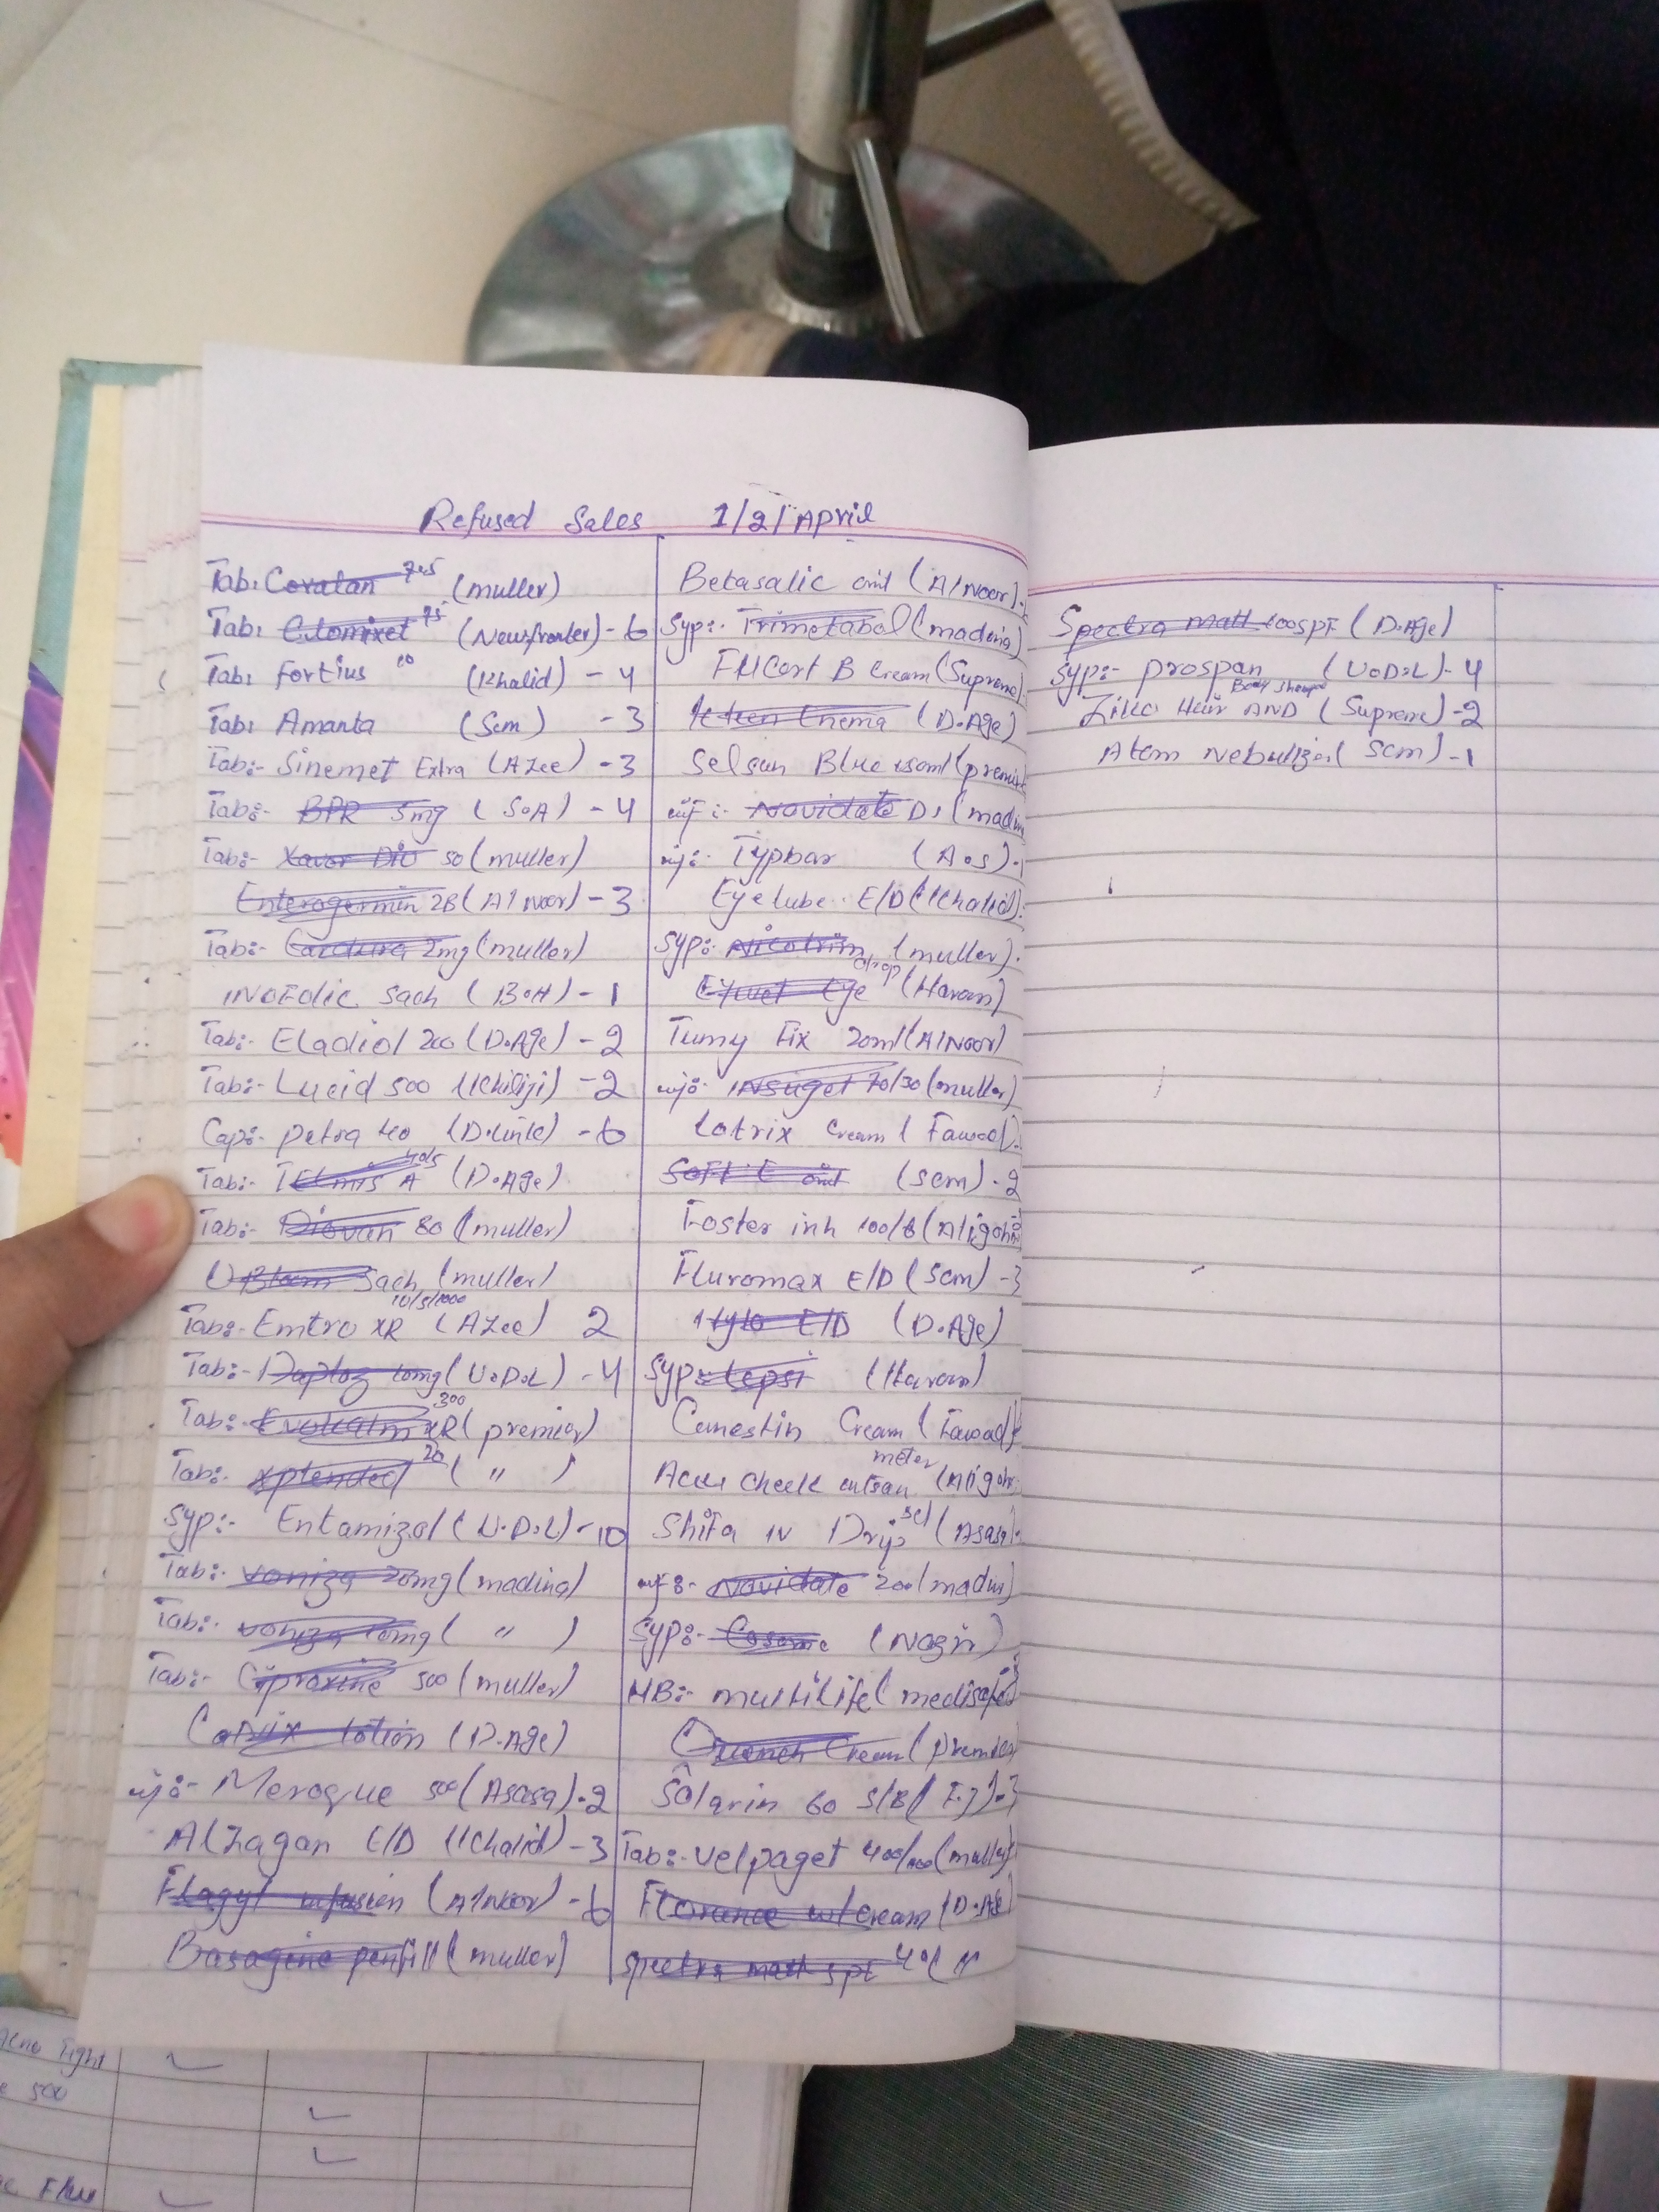 Refused Sales 1/2/April
Tab: Covatan 745 (muller)
Tab: Clomixet 75 (Newfronter) - 6
Tab: Fortius 10 (Khalid) - 4
Tab: Amanta (Scm) - 3
Tab:- Sinemet Extra (AZee) - 3
Tab:- BPR 5mg (S.A) - 4
Tab:- Xavor Dio 50 (muller)
Enterogermin 2B (Al Noor) - 3
Tab:- Cardura 2mg (muller)
INOFOlic Sach (B.H) - 1
Tab:- Eladiol 200 (D.Age) - 2
Tab:- Lucid 500 (Khiliji) - 2
Cap:- petra 40 (D.link) - 6
Tab:- Telmis A 40/5 (D.Age)
Tab:- Diovan 80 (muller)
Sach (muller)
Tab:- Emtro XR 10/5/1000 (AZee) 2
Tab:- Daploz 10mg (U.D.L) - 4
Tab:- XR 300 (premier)
Tab:- xptended 20 ( " )
Syp:- Entamizol (U.D.L) - 10
Tab:- voniza 20mg (madina)
Tab:- voniza 10mg ( " )
Tab:- Ciproxine 500 (muller)
lotion (D.Age)
inj:- Meroque 500 (Asasa) - 2
Alzagan E/D (Khalid) - 3
Flagyl infusion (Al Noor) - 6
Basagine penfill (muller)
Betasalic oint (Al Noor)
Syp:- Trimetabol (madina)
FMCort B Cream (Supreme)
Enema (D.Age)
Selsun Blue (premier
inj:- Novidate D1 (madin
inj:- Typbar (A.S)
Eyelube E/D (Khalid)
Syp:- (muller)
Eye drop (Haram)
Tumy Fix 20ml (Al Noor)
inj:- INSuget 70/30 (muller)
Lotrix Cream (Fawad)
Soft E oint (scm) - 2
Foster inh 100/6 (Aligoh
Fluromax E/D (Scm) - 3
Hylo E/D (D.Age)
Syp:- Lepsi (Haram)
Canestin Cream (Fawad)
Accu Cheek meter (Aligoh
Shifa IV Drip set (Asasa)
inj:- Novidate 200 (madin)
Syp:- Cosome (Nazir)
HB:- multilife (medisafe)
Quench Cream (premier
Solarin 60 S/B (F.J) - 3
Tab:- velpaget 400/100 (muller)
Florence w/cream (D.Age
Spectra matt spf 40 ( "
Spectra matt 100SPF (D.Age)
Syp:- prospan (U.D.L) - 4
Hair AND Body (Supreme) - 2
Atom Nebulizer (scm) - 1
500